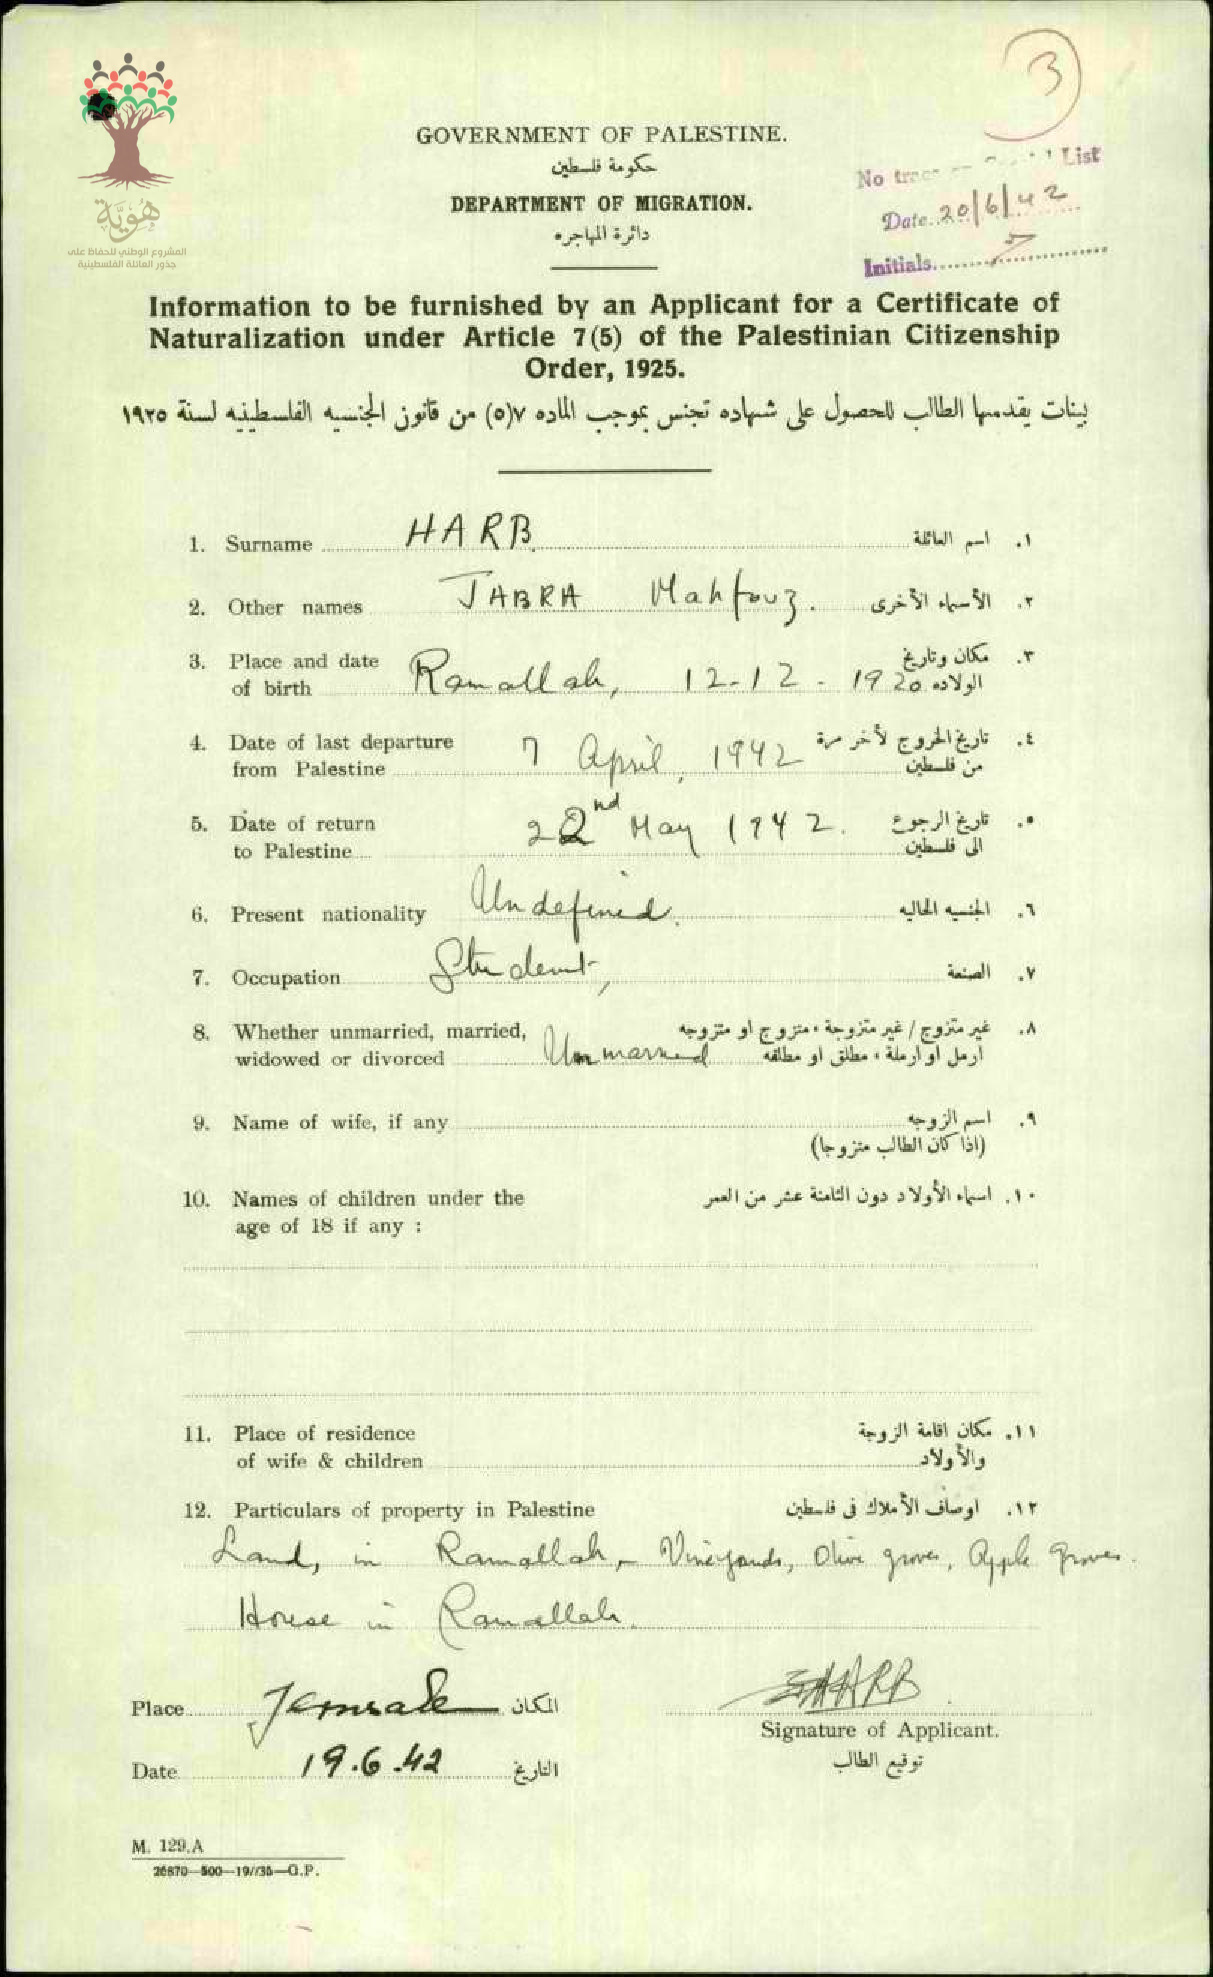 3
هُوِيَّة
المشروع الوطني للحفاظ على
جذور العائلة الفلسطينية
GOVERNMENT OF PALESTINE.
حكومة فلسطين
DEPARTMENT OF MIGRATION.
دائرة المهاجره
No List
Date 20/6/42
Initials
Information to be furnished by an Applicant for a Certificate of
Naturalization under Article 7(5) of the Palestinian Citizenship
Order, 1925.
بينات يقدمها الطالب للحصول على شهاده تجنس بموجب الماده ٧(٥) من قانون الجنسيه الفلسطينيه لسنة ١٩٢٥
1. Surname HARB اسم العائلة .١
2. Other names JABRA Mahfouz. الأسماء الأخرى .٢
3. Place and date مكان وتاريخ .٣
of birth Ramallah, 12-12-1920 الولاده
4. Date of last departure تاريخ الخروج لأخر مرة .٤
from Palestine 7 April, 1942 من فلسطين
5. Date of return تاريخ الرجوع .٥
to Palestine 22nd May 1942. الى فلسطين
6. Present nationality Undefined. الجنسيه الحاليه .٦
7. Occupation Student, الصنعة .٧
8. Whether unmarried, married, غير متزوج / غير متزوجة، متزوج او متزوجه .٨
widowed or divorced Unmarried ارمل او ارملة، مطلق او مطلقه
9. Name of wife, if any اسم الزوجه .٩
(اذا كان الطالب متزوجا)
10. Names of children under the اسماء الأولاد دون الثامنة عشر من العمر .١٠
age of 18 if any :
11. Place of residence مكان اقامة الزوجة .١١
of wife & children والأولاد
12. Particulars of property in Palestine اوصاف الأملاك فى فلسطين .١٢
Land, in Ramallah, - Vineyards, Olive groves, Apple groves.
House in Ramallah.
Place المكان
HARB
Signature of Applicant.
توقيع الطالب
Date 19.6.42 التاريخ
M. 129.A
26870—500—19//35—G.P.